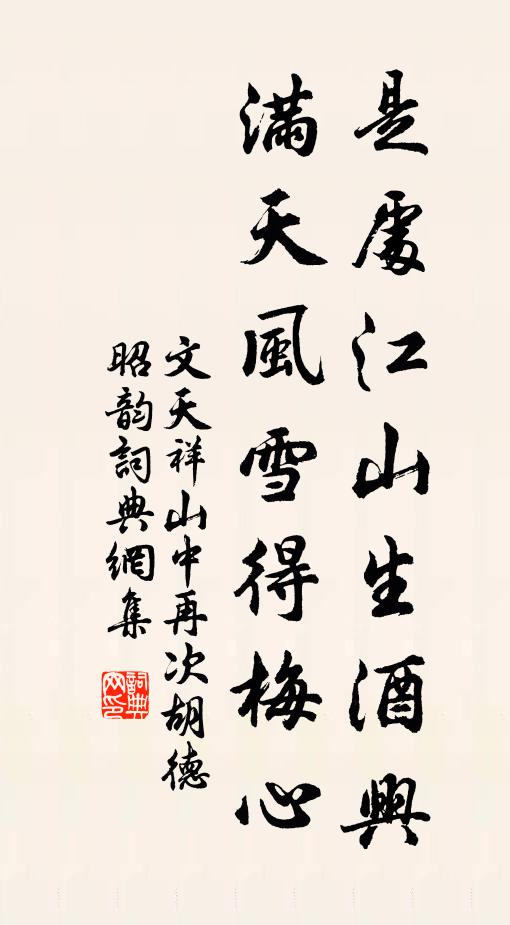 是處江山生酒興
滿天風雪得梅心
文天祥山中再次胡德
昭韵詞典網集
詞典網印